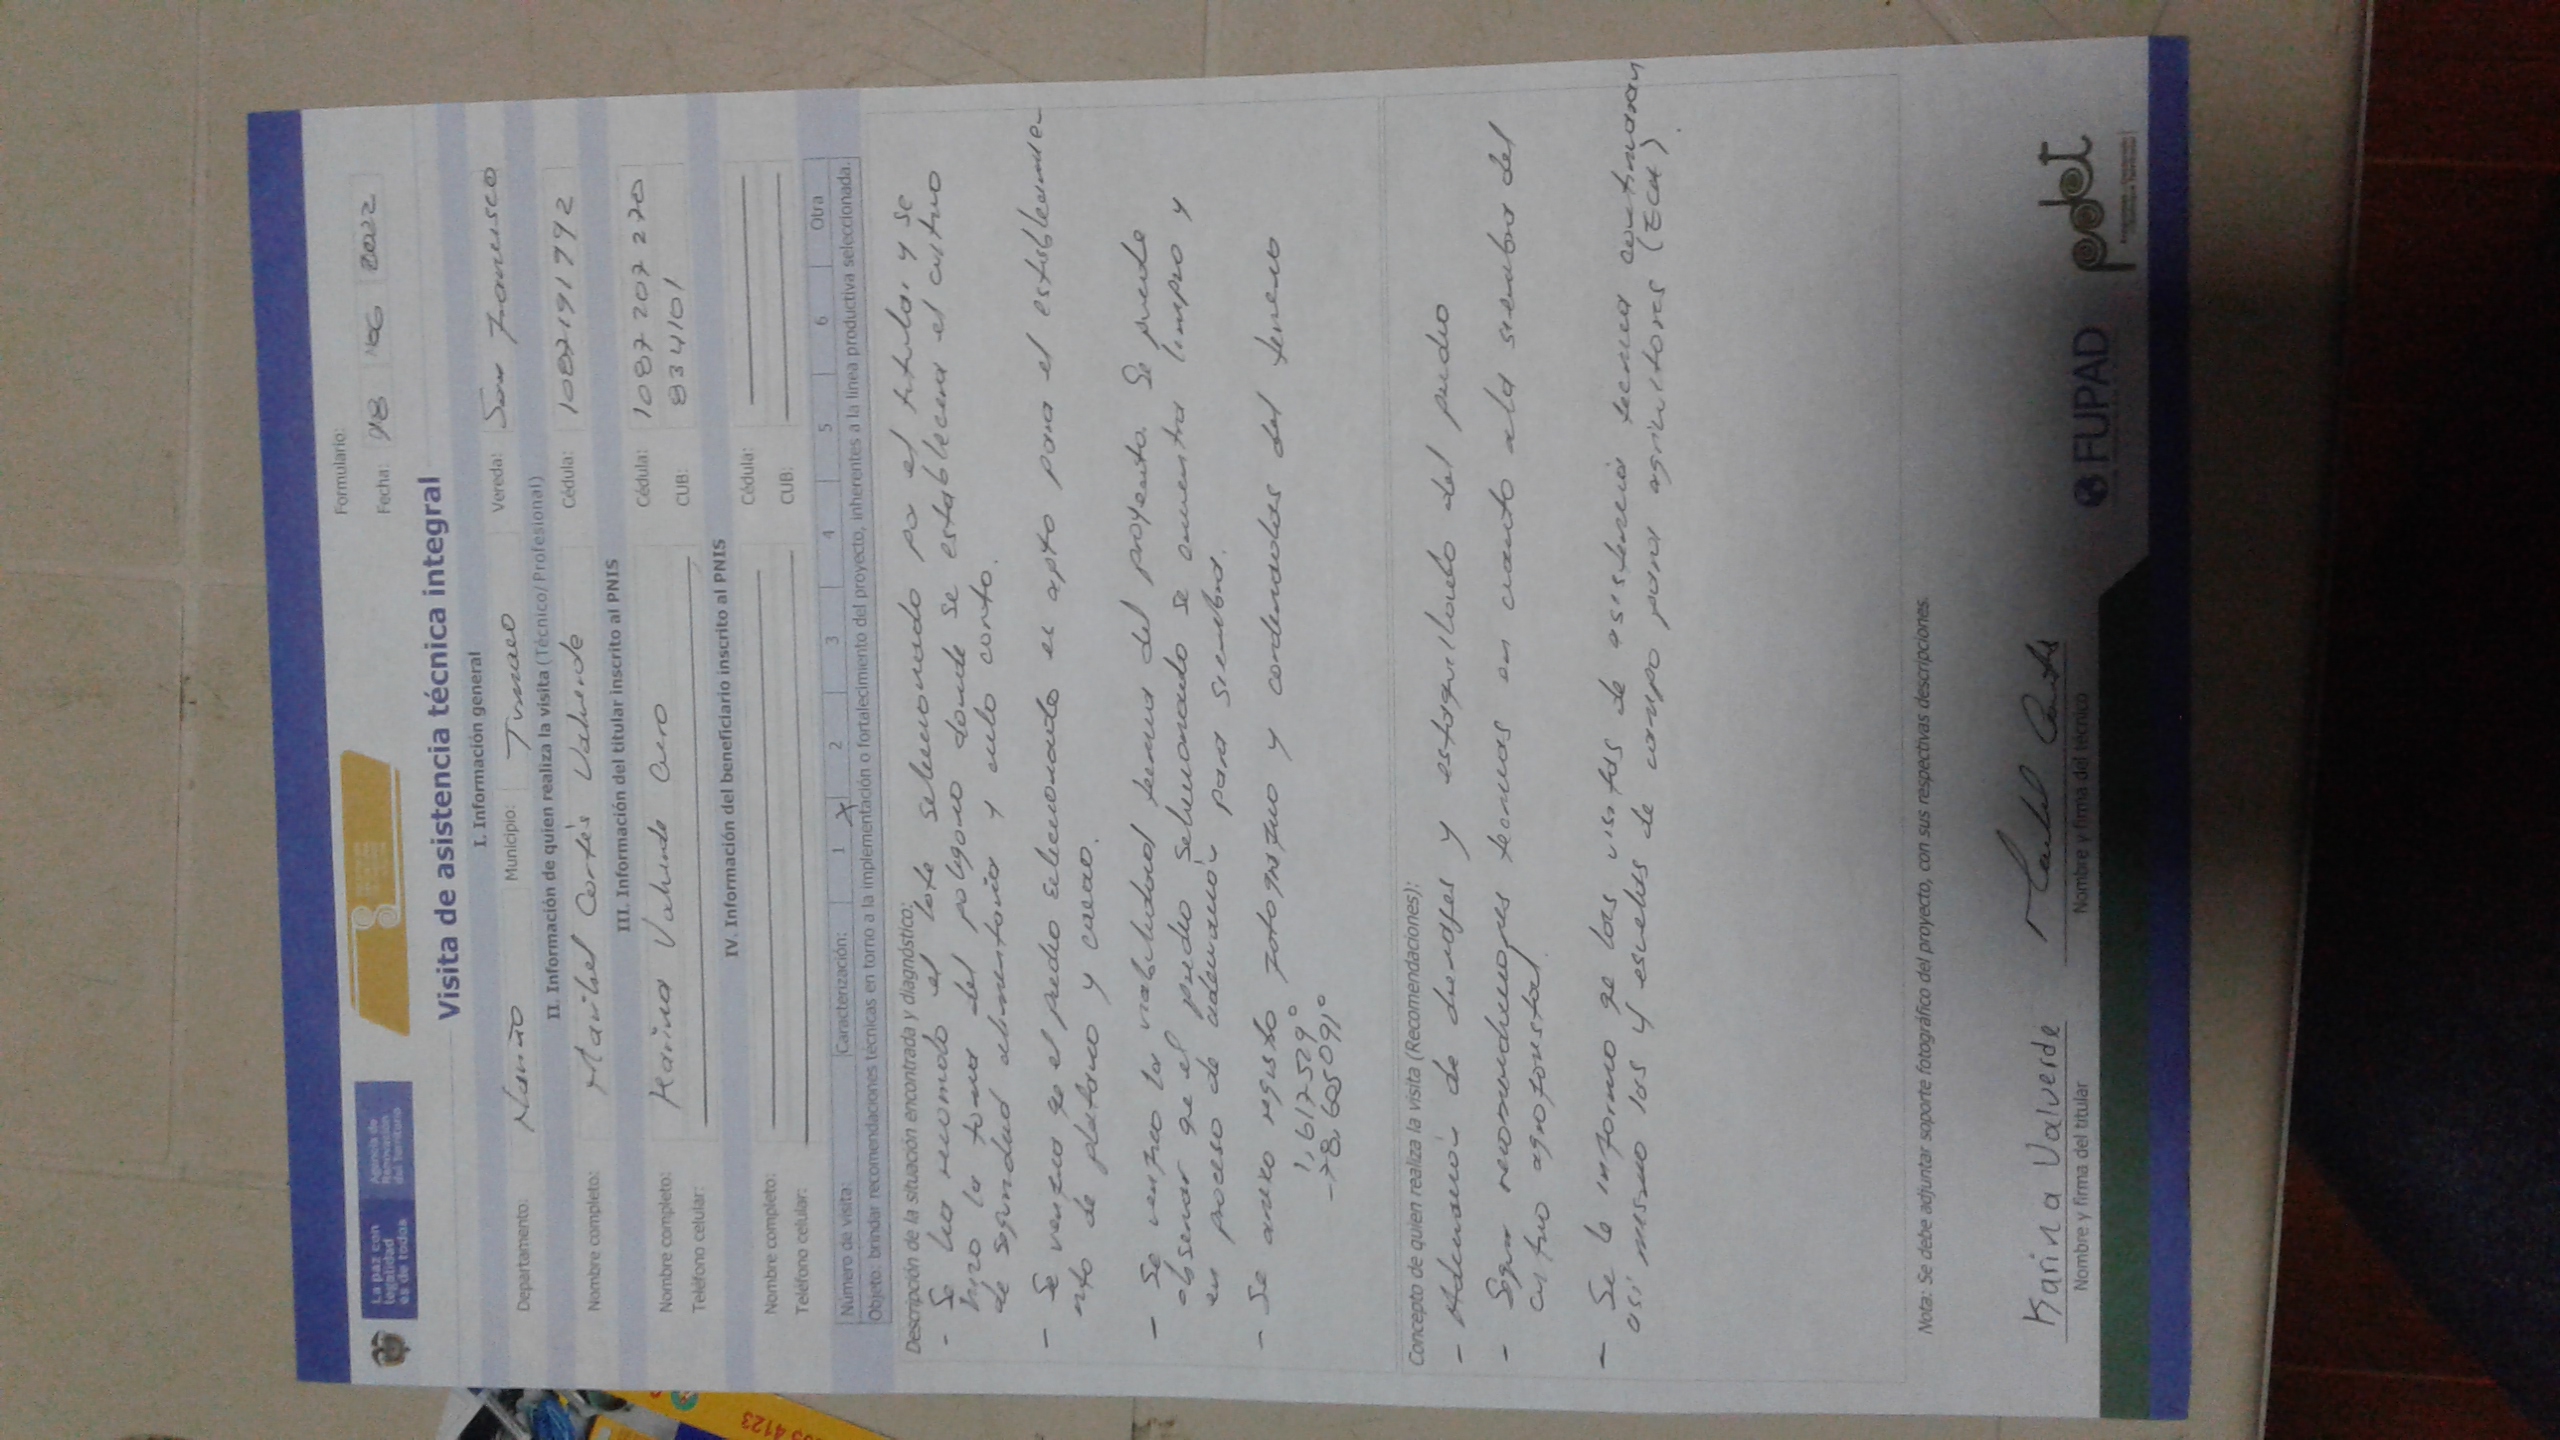 La paz con
legalidad
es de todos
Agencia de
Renovación
del Territorio
Formulario:
Fecha: 2022
Visita de asistencia técnica integral
I. Información general
Departamento: Nariño Municipio: Tumaco Vereda: San Francisco
II. Información de quien realiza la visita (Técnico/Profesional)
Nombre completo: Maribel Cortés Valverde Cédula: 1087191792
III. Información del titular inscrito al PNIS
Nombre completo: Karina Valverde Cédula: 1087 207 270
Teléfono celular: CUB: 834101
IV. Información del beneficiario inscrito al PNIS
Nombre completo: Cédula:
Teléfono celular: CUB:
Número de visita: Caracterización: 1 X 2 3 4 5 6 Otra
Objeto: brindar recomendaciones técnicas en torno a la implementación o fortalecimiento del proyecto, inherentes a la línea productiva seleccionada.
Descripción de la situación encontrada y diagnóstico:
- Se ha el lote seleccionado por el titular y se
hizo la toma del poligono donde se establecera el cultivo
de seguridad alimentaria y ciclo corto.
- Se verifico qe el predio seleccionado es apto para el establecimie-
nto de platano y cacao.
- Se verifico la viabilidad tecnica del proyecto. Se puede
observar que el predio seleccionado se encuentra limpio y
en proceso de adecuación para siembra.
- Se anexo registo fotografico y cordenadas del terreno
1,6172529°
-78,605091°
Concepto de quien realiza la visita (Recomendaciones):
- Adecuación de drenajes y estaquillado del predio
- Seguir recomendaciones tecnicas en cuanto a la siembra del
cultivo agroforestal.
- Se le informo qe las visitas de asistencia tecnica continuaran
asi mismo las 4 escuelas de campo para agricultores (ECA).
Nota: Se debe adjuntar soporte fotográfico del proyecto, con sus respectivas descripciones.
Karina Valverde
Nombre y firma del titular Nombre y firma del técnico
FUPAD
pdet
4123